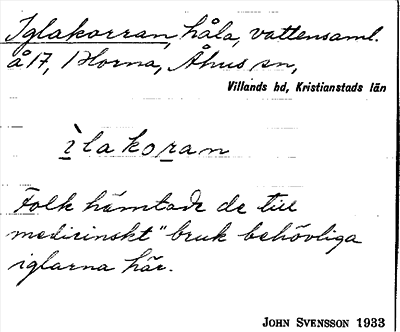 Iglakorran, håla, vattensaml.
å 17, Horna, Åhus sn,
Villands hd, Kristianstads län
ìlakoran
Folk hämtade de till
medicinskt" bruk behövliga
iglarna här.
JOHN SVENSSON 1933